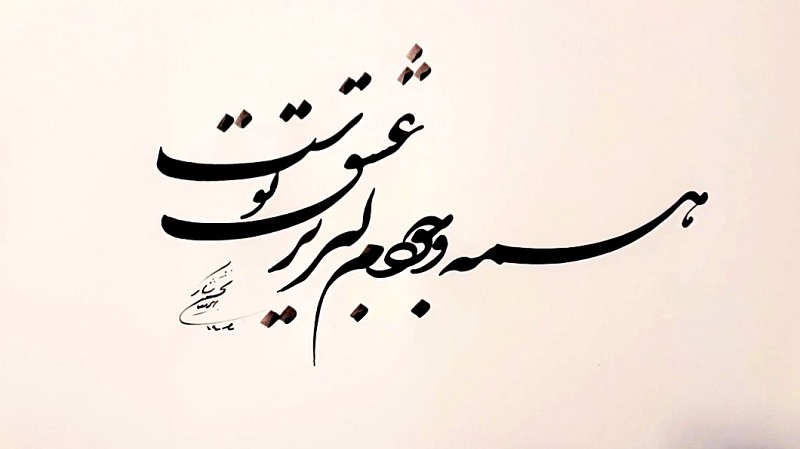 همه وجودم لبریز
عشق توست